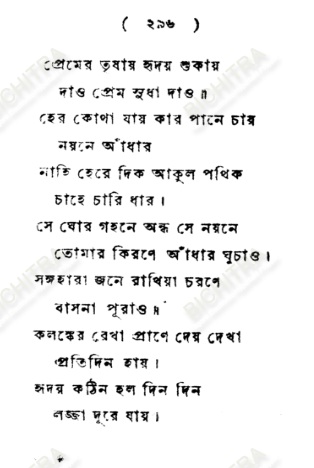 ( ২৯৬ )
প্রেমের তৃষায় হৃদয় শুকায়
দাও প্রেম সুধা দাও॥
হের কোথা যায় কার পানে চায়
নয়নে আঁধার
নাহি হেরে দিক আকুল পথিক
চাহে চারি ধার।
সে ঘোর গহনে অন্ধ সে নয়নে
তোমার কিরণে আঁধার ঘুচাও।
সঙ্গহারা জনে রাখিয়া চরণে
বাসনা পূরাও॥
কলঙ্কের রেখা প্রাণে দেয় দেখা
প্রতিদিন হায়।
হৃদয় কঠিন হল দিন দিন
লজ্জা দূরে যায়।